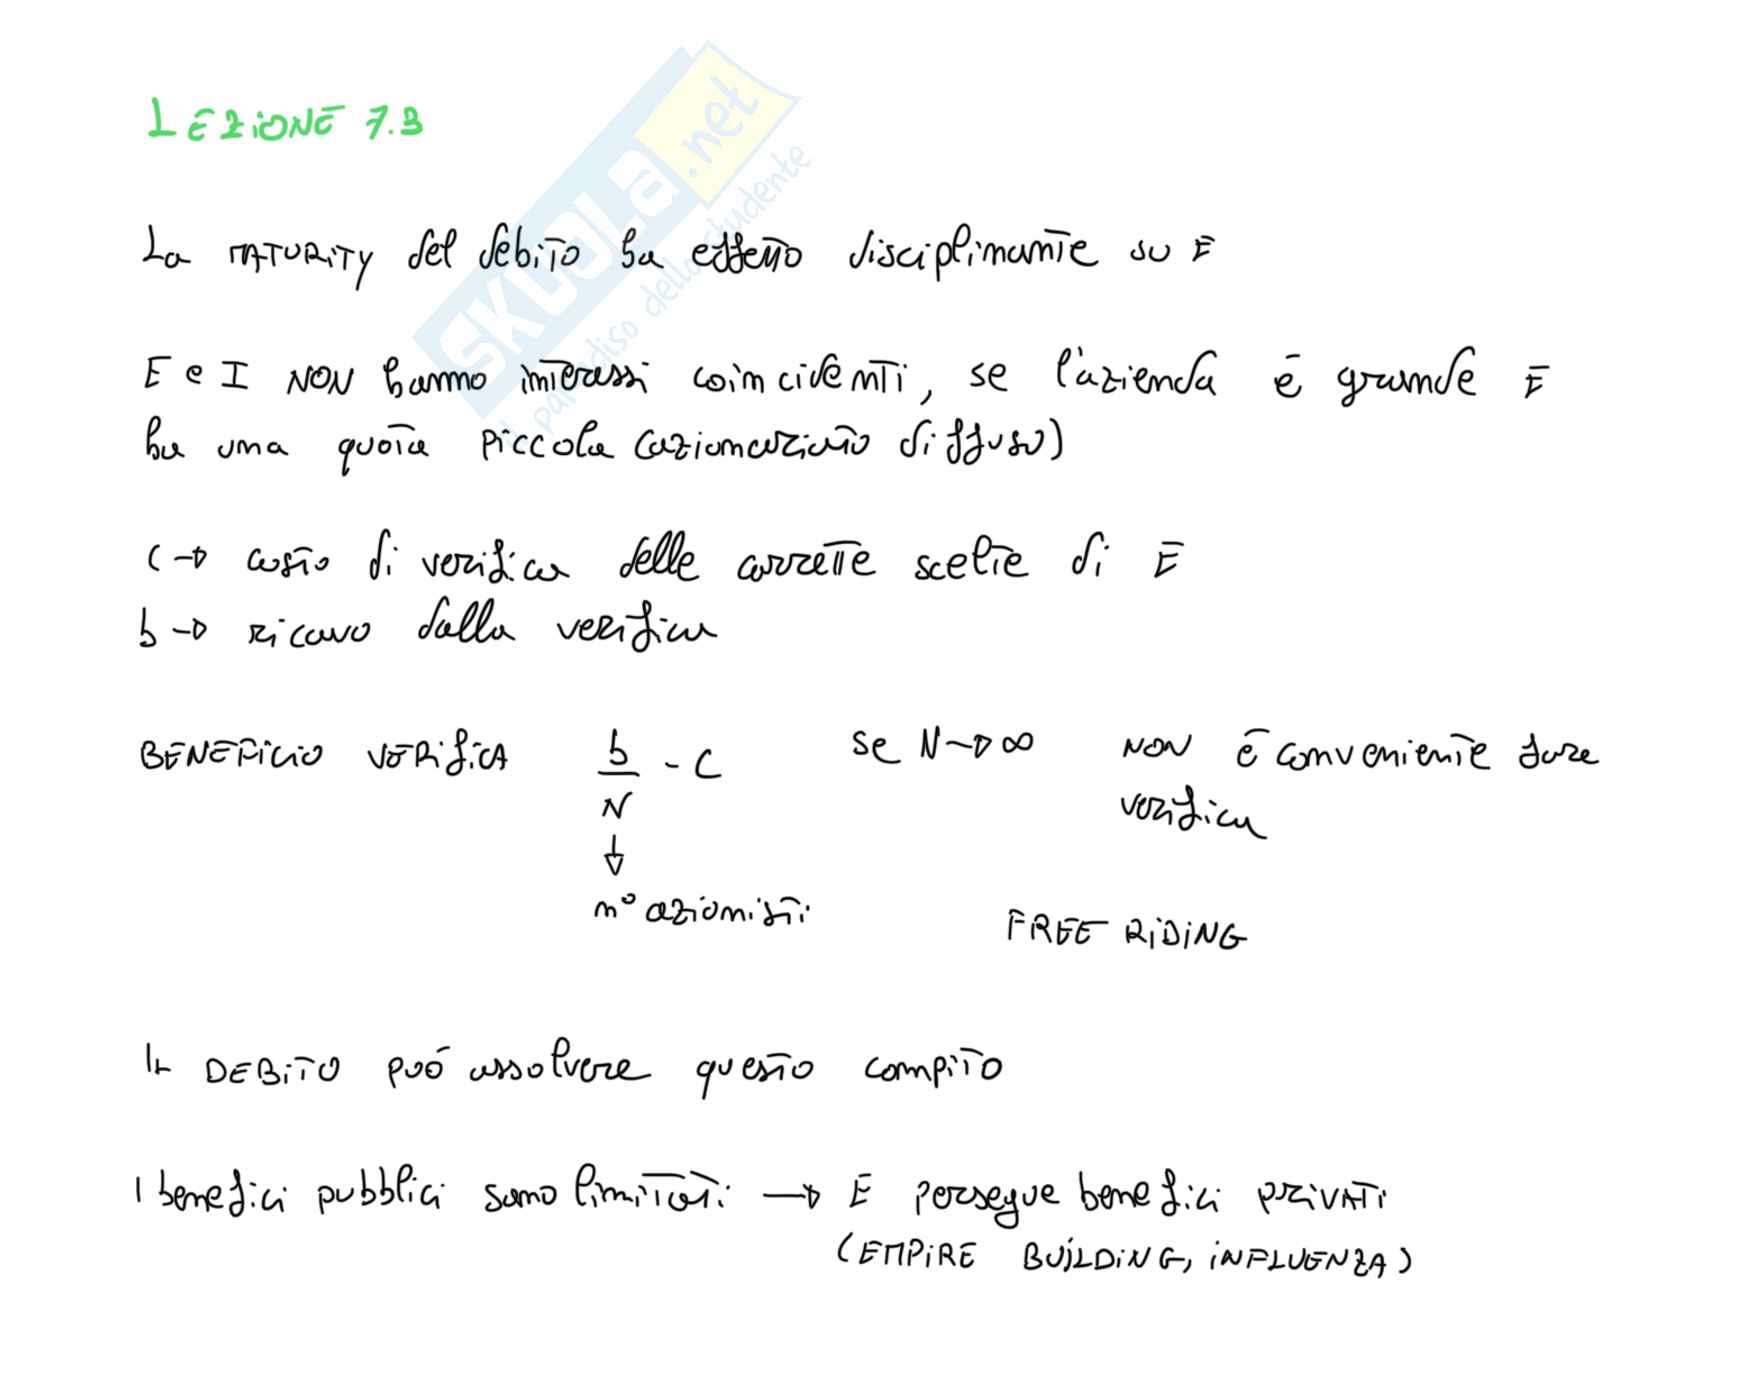 LEZIONE 7.3
SKUOLA.net
il paradiso dello studente
La MATURITY del debito ha effetto disciplinante su E
E e I NON hanno interessi coincidenti, se l'azienda é grande E
ha una quota piccola (azionariato diffuso)
C → costo di verifica delle corrette scelte di E
b → ricavo dalla verifica
BENEFICIO VERIFICA b/N - C se N → ∞ NON é conveniente fare
verifica
↓
n° azionisti
FREE RIDING
IL DEBITO puó assolvere questo compito
I benefici pubblici sono limitati → E persegue benefici privati
(EMPIRE BUILDING, INFLUENZA)